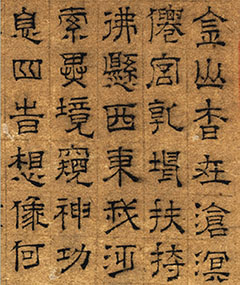 金山杳在滄溟
僊宮乹坤扶持
彿懸西東我泛
索異境窺神功
息四旹想像何